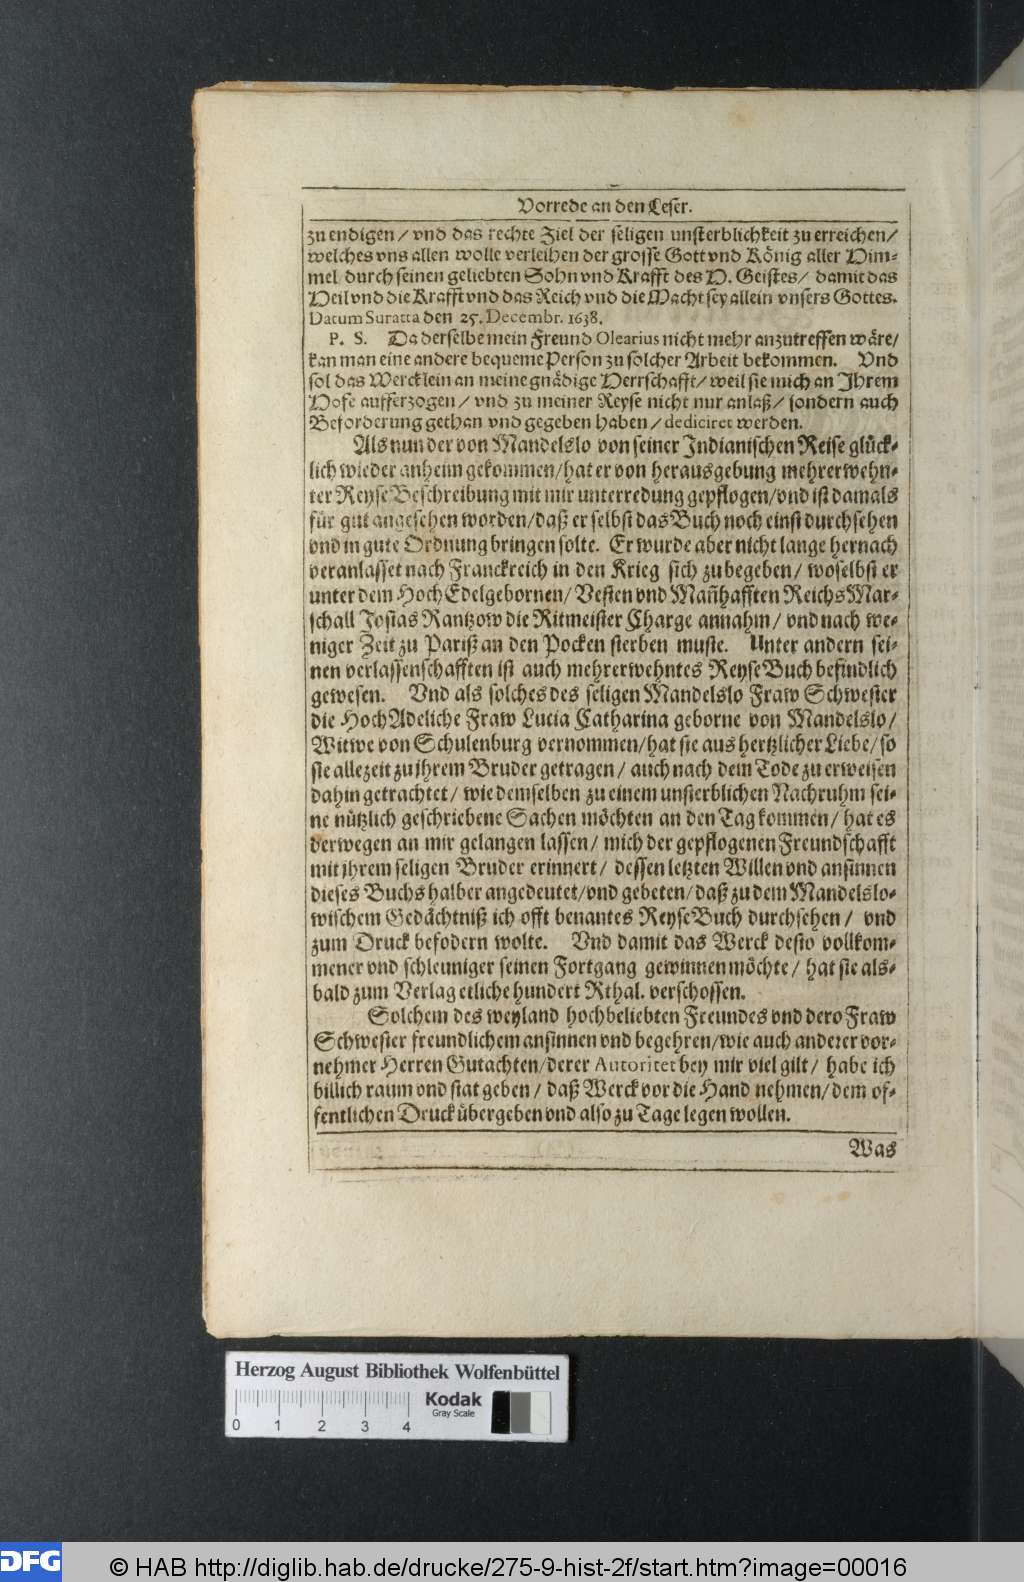 Vorrede an den Leser.
zu endigen / vnd das rechte Ziel der seligen unsterblichkeit zu erreichen /
welches vns allen wolle verleihen der grosse Gott vnd König aller Him-
mel durch seinen geliebten Sohn vnd Krafft des H. Geistes / damit das
Heil vnd die Krafft vnd das Reich vnd die Macht sey allein vnsers Gottes.
Datum Suratta den 25. Decembr. 1638.
P. S. Da derselbe mein Freund Olearius nicht mehr anzutreffen wäre /
kan man eine andere bequeme Person zu solcher Arbeit bekommen. Vnd
sol das Wercklein an meine gnädige Herrschafft / weil sie mich an Ihrem
Hofe aufferzogen / vnd zu meiner Reyse nicht nur anlaß / sondern auch
Beforderung gethan vnd gegeben haben / dediciret werden.
Als nun der von Mandelslo von seiner Indianischen Reise glück-
lich wieder anheim gekommen / hat er von herausgebung mehrerwehn-
ter Reyse Beschreibung mit mir unterredung gepflogen / vnd ist damals
für gut angesehen worden / daß er selbst das Buch noch einst durchsehen
vnd in gute Ordnung bringen solte. Er wurde aber nicht lange hernach
veranlasset nach Franckreich in den Krieg sich zubegeben / woselbst er
unter dem HochEdelgebornen / Vesten vnd Mañhafften ReichsMar-
schall Josias Rantzow die Ritmeister Charge annahm / vnd nach we-
niger Zeit zu Pariß an den Pocken sterben muste. Unter andern sei-
nen verlassenschafften ist auch mehrerwehntes ReyseBuch befindlich
gewesen. Vnd als solches des seligen Mandelslo Fraw Schwester
die HochAdeliche Fraw Lucia Catharina geborne von Mandelslo /
Witwe von Schulenburg vernommen / hat sie aus hertzlicher Liebe / so
sie allezeit zu jhrem Bruder getragen / auch nach dem Tode zu erweisen
dahin getrachtet / wie demselben zu einem unsterblichen Nachruhm sei-
ne nützlich geschriebene Sachen möchten an den Tag kommen / hat es
derwegen an mir gelangen lassen / mich der gepflogenen Freundschafft
mit jhrem seligen Bruder erinnert / dessen letzten Willen vnd ansinnen
dieses Buchs halber angedeutet / vnd gebeten / daß zu dem Mandelslo-
wischem Gedächtniß ich offt benantes ReyseBuch durchsehen / vnd
zum Druck befodern wolte. Vnd damit das Werck desto vollkom-
mener vnd schleuniger seinen Fortgang gewinnen möchte / hat sie als-
bald zum Verlag etliche hundert Rthal. verschossen.
Solchem des weyland hochbeliebten Freundes vnd dero Fraw
Schwester freundlichem ansinnen vnd begehren / wie auch anderer vor-
nehmer Herren Gutachten / derer Autoritet bey mir viel gilt / habe ich
billich raum vnd stat geben / daß Werck vor die Hand nehmen / dem of-
fentlichen Druck übergeben vnd also zu Tage legen wollen.
Was
Herzog August Bibliothek Wolfenbüttel
Kodak
Gray Scale
0 1 2 3 4
DFG
© HAB http://diglib.hab.de/drucke/275-9-hist-2f/start.htm?image=00016